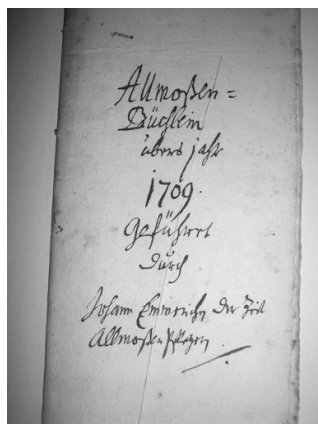 Allmoßen=
Büchlein
übers jahr
1709.
Geführet
durch
Johann Emmerichn der Zeit
Allmoßenpflegern